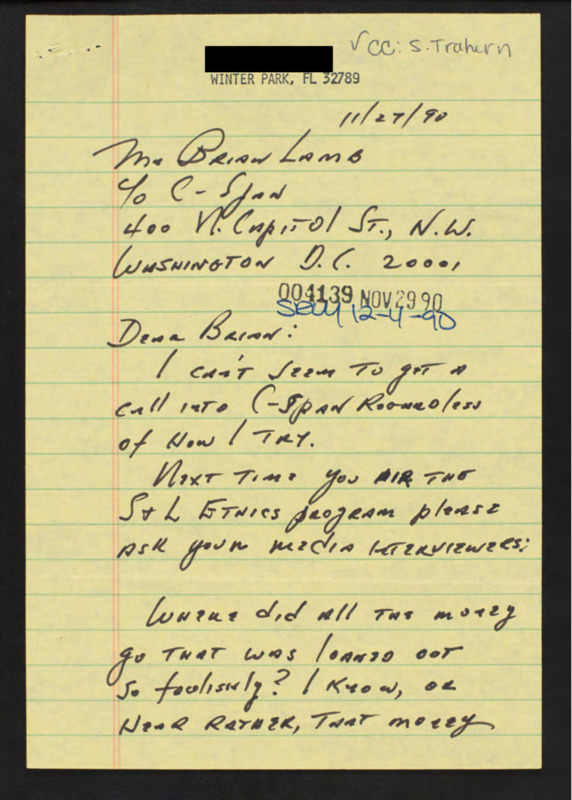 ✓ CC: S. Trahern
WINTER PARK, FL 32789
11/27/90
Mr Brian Lamb
c/o C-Span
400 N. Capitol St., N.W.
Washington D.C. 20001
004139 NOV 29 90
12-4-90
Dear Brian:
I can't seem to get a
call into C-Span Regardless
of How I Try.
Next Time you AIR THE
S+L Ethics program please
ask your media interviewers:
Where did all the money
go that was loaned out
so foolishly? I know, or
Hear Rather, That money